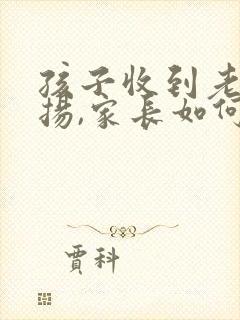 孩子收到老
揚,家長如何
賈科